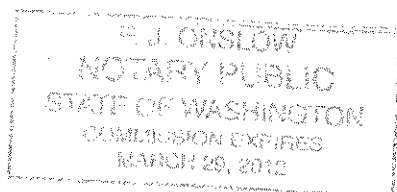 J. ONSLOW
NOTARY PUBLIC
STATE OF WASHINGTON
COMMISSION EXPIRES
MARCH 29, 2012